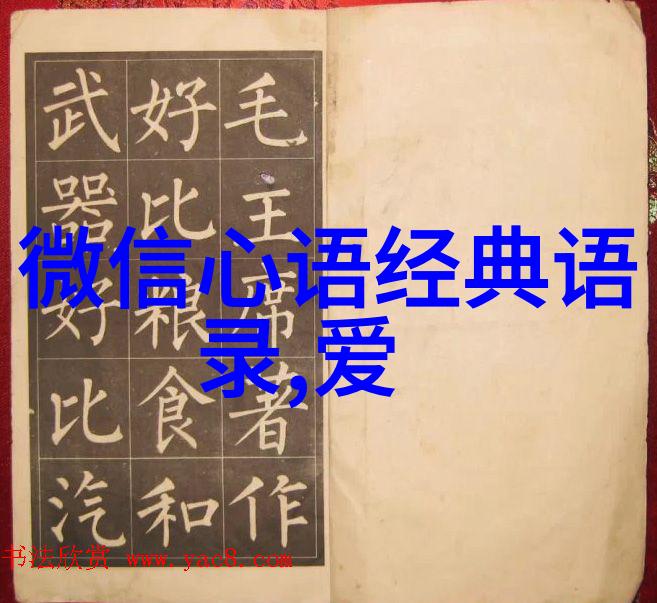 毛主席著作
好比粮食和
武器好比汽
微信心语经典语
录,爱
书法欣赏 www.yac8.com